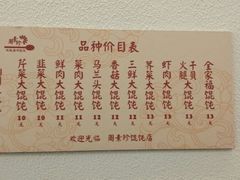 周素珍
品种价目表
芹菜大馄饨 10元
韭菜大馄饨 10元
鲜肉大馄饨 11元
菜肉大馄饨 11元
马兰头大馄饨 11元
香菇大馄饨 11元
三鲜大馄饨 12元
荠菜大馄饨 12元
虾肉大馄饨 13元
干贝火腿大馄饨 13元
全家福馄饨 13元
欢迎光临 周素珍馄饨店